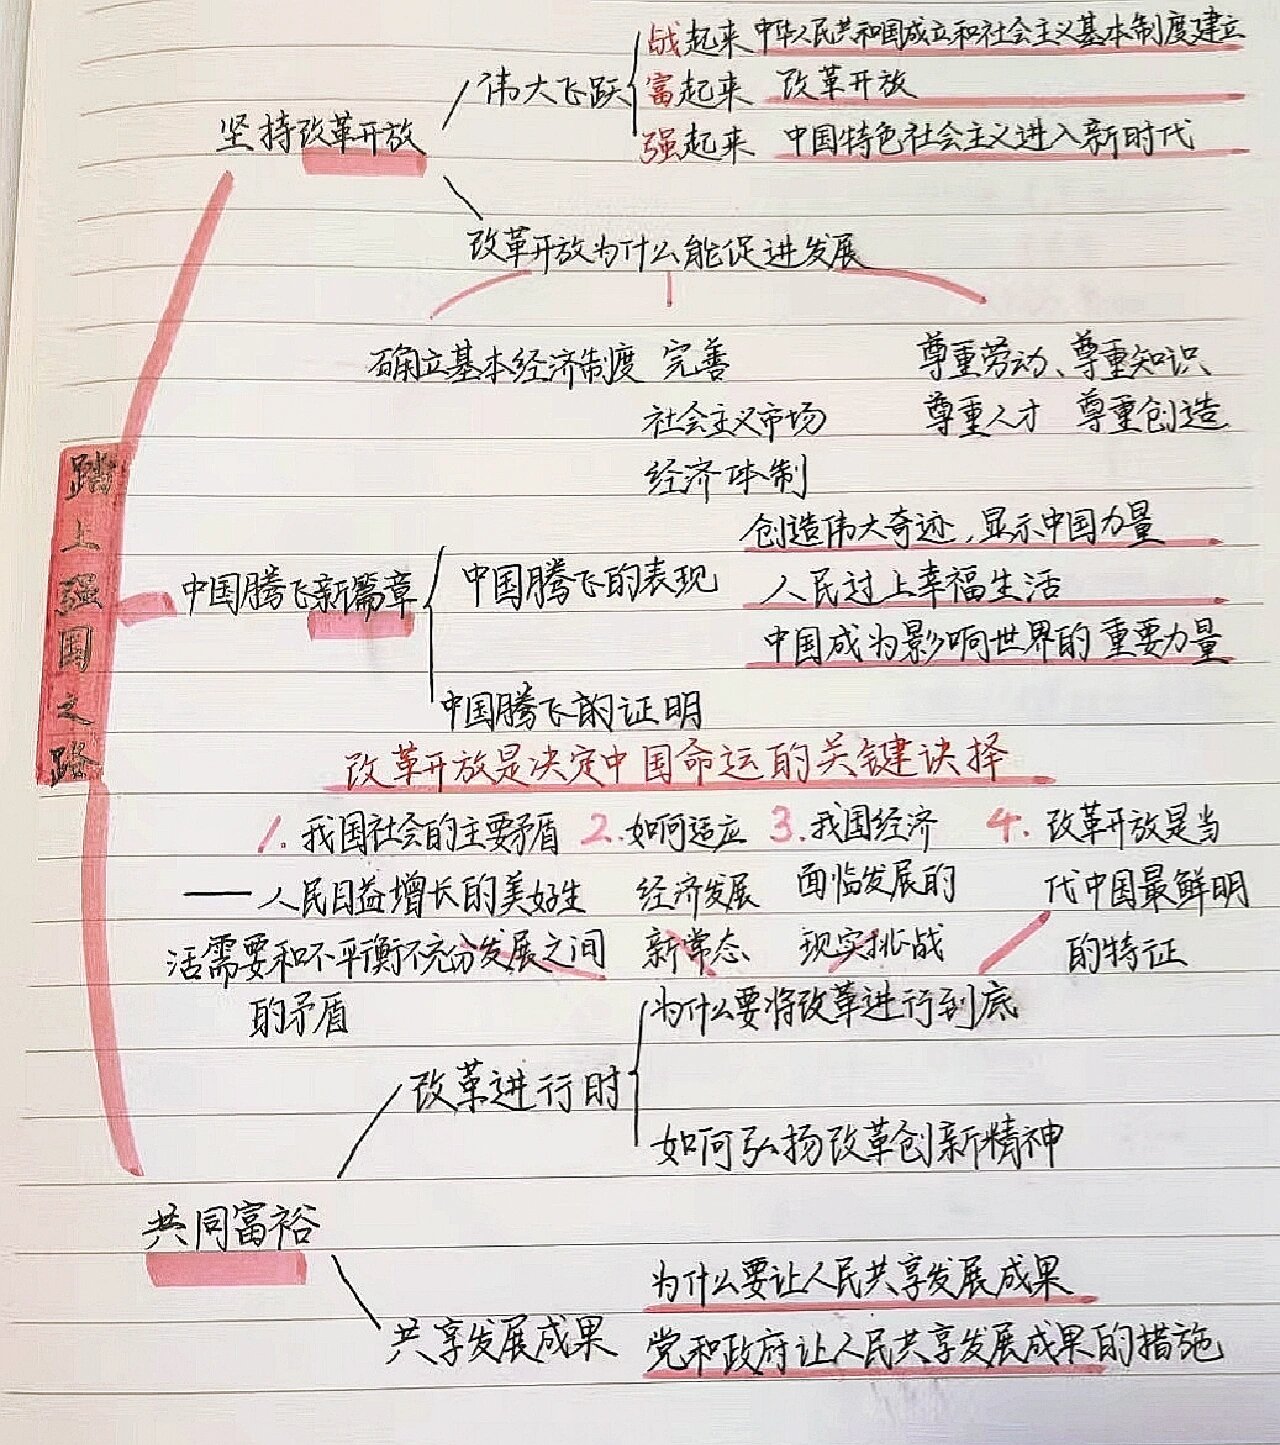 踏上强国之路
坚持改革开放
伟大飞跃
战起来 中华人民共和国成立和社会主义基本制度建立
富起来 改革开放
强起来 中国特色社会主义进入新时代
改革开放为什么能促进发展
确立基本经济制度
完善
社会主义市场
经济体制
尊重劳动、尊重知识
尊重人才 尊重创造
中国腾飞新篇章
中国腾飞的表现
创造伟大奇迹,显示中国力量
人民过上幸福生活
中国成为影响世界的重要力量
中国腾飞的证明
改革开放是决定中国命运的关键诀择
1. 我国社会的主要矛盾
——人民日益增长的美好生
活需要和不平衡不充分发展之间
的矛盾
2. 如何适应
经济发展
新常态
3. 我国经济
面临发展的
现实挑战
4. 改革开放是当
代中国最鲜明
的特征
共同富裕
改革进行时
为什么要将改革进行到底
如何弘扬改革创新精神
共享发展成果
为什么要让人民共享发展成果
党和政府让人民共享发展成果的措施